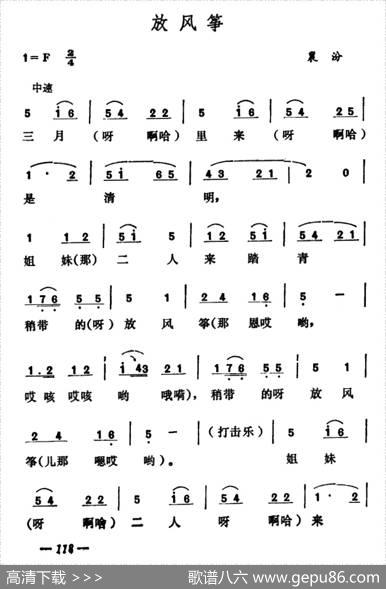 放风筝
1=F 2/4 襄汾
中速
5 i6 | 54 22 | 5 i6 | 54 25 |
三月(呀 啊哈)里来(呀 啊哈)
1 · 2 | 5i 65 | 43 21 | 2 0 |
是清明,
1 12 | 5i 5 | 12 5i | 54 21 |
姐妹(那)二人来踏青
176 55 | 5 1 | 24 16 | 5 — |
稍带的(呀)放风筝(那恩哎哟,
1.2 12 | i43 21 | 176 55 | 5 1 |
哎咳哎咳哟哦嗬),稍带的呀放风
24 16 | 5 — | (打击乐) | 5 i6 |
筝(儿那嗯哎哟)。姐妹
54 22 | 5 i6 | 54 22 | 1 · 2 |
(呀 啊哈)二人呀 啊哈)来
— 118 —
高清下载 >>> 歌谱八六 www.gepu86.com